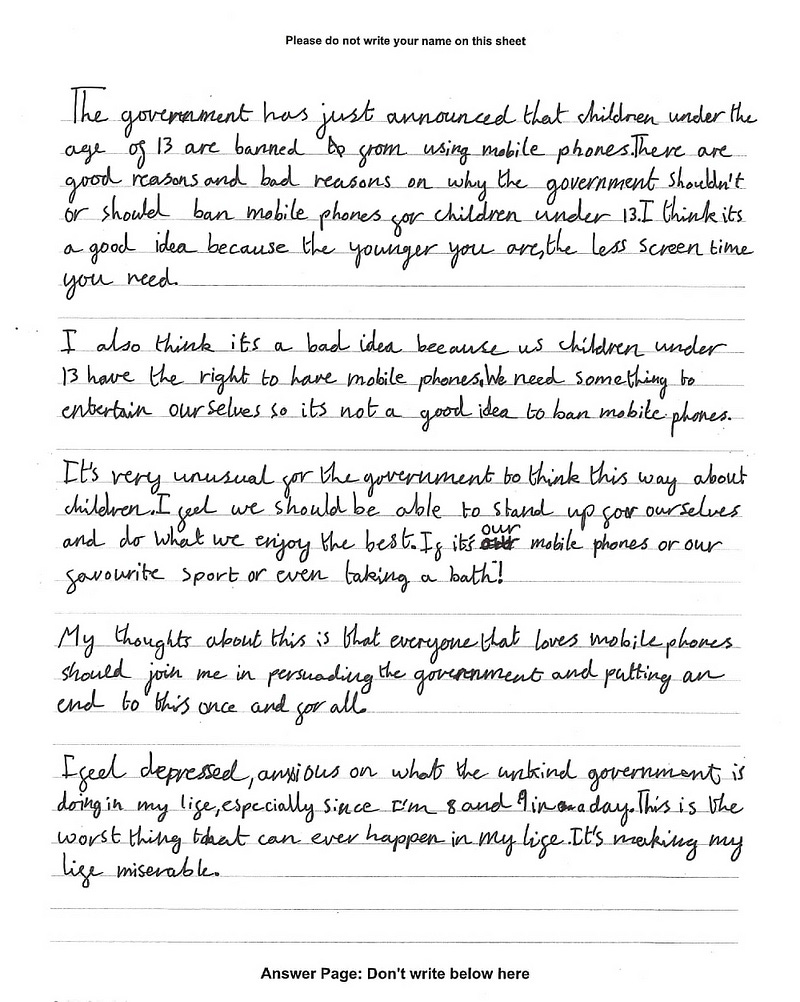 Please do not write your name on this sheet
The government has just announced that children under the
age of 13 are banned from using mobile phones.There are
good reasons and bad reasons on why the government shouldn't
or should ban mobile phones for children under 13.I think its
a good idea because the younger you are,the less screen time
you need.
I also think it's a bad idea because us children under
13 have the right to have mobile phones.We need something to
entertain ourselves so its not a good idea to ban mobile phones.
It's very unusual for the government to think this way about
children.I feel we should be able to stand up for ourselves
and do what we enjoy the best.If it's our mobile phones or our
favourite sport or even taking a bath!
My thoughts about this is that everyone that loves mobile phones
should join me in persuading the government and putting an
end to this once and for all.
I feel depressed, anxious on what the unkind government is
doing in my life,especially since I'm 8 and 9 in a day.This is the
worst thing that can ever happen in my life.It's making my
life miserable.
Answer Page: Don't write below here